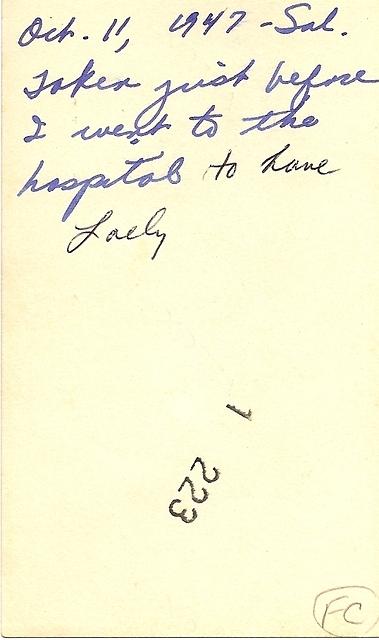 Oct. 11, 1947 - Sat.
Taken just before
I went to the
hospital to have
Loely
1
223
FC